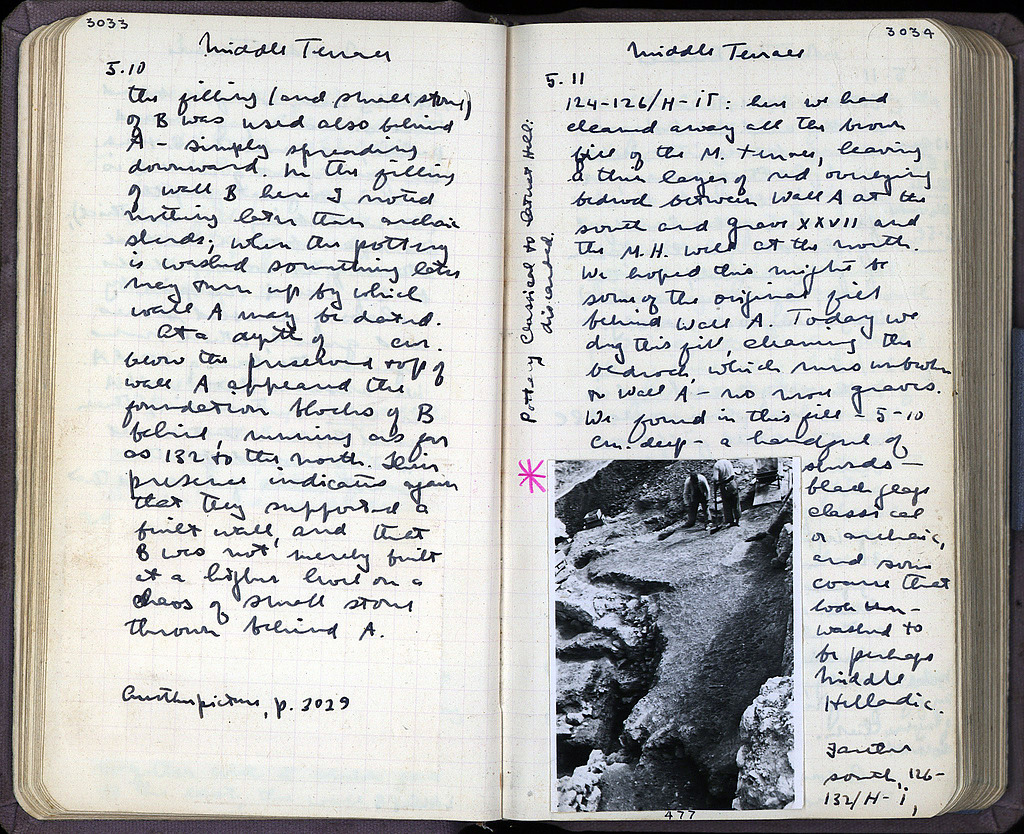 3033
Middle Terrace
5.10
the filling (and small stones)
of B was used also behind
A - simply spreading
downward. In the filling
of wall B here I noted
nothing later than archaic
sherds; when the pottery
is washed something later
may turn up by which
wall A may be dated.
At a depth of cm.
below the preserved top of
wall A appeared the
foundation blocks of B
behind, running as far
as 132 to the north. Their
presence indicates again
that they supported a
built wall, and that
B was not merely built
at a higher level on a
chaos of small stones
thrown behind A.
Another picture, p. 3029
3034
Middle Terrace
5.11
124-126/H-ΙΓ: here we had
cleared away all the brown
fill of the M. Terrace, leaving
a thin layer of red overlying
bedrock between Wall A at the
south and grave XXVII and
the M.H. wall at the north.
We hoped this might be
some of the original fill
behind Wall A. Today we
dug this fill, cleaning the
bedrock, which runs unbroken
to Wall A - no more graves.
We found in this fill - 5-10
cm. deep - a handful of
sherds -
black glaze
classical
or archaic,
and some
coarse that
look un-
washed to
be perhaps
Middle
Helladic.
Farther
south, 126-
132/H-i,
Pottery Classical to Latest Hell:
discarded.
477